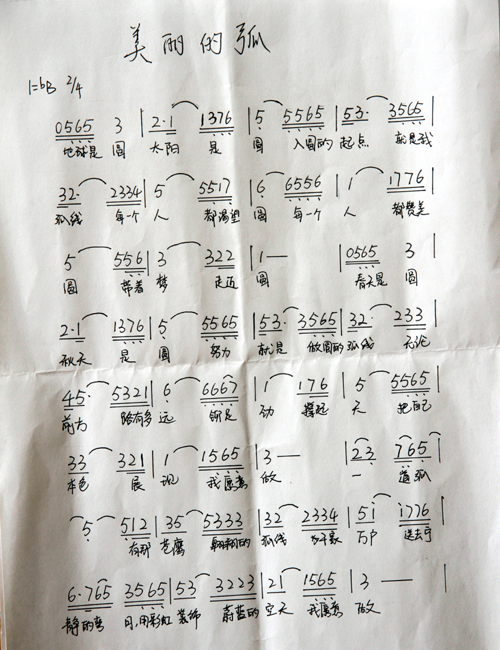 美丽的弧
1=bB 2/4
0565 3 | 2·1 1376 | 5 5565 | 53· 3565 |
地球是 圆 太阳 是 圆 入圆的 起点 就是我
32· 2334 | 5 5517 | 6 6556 | 1 1776 |
弧线 每一个 人 都渴望 圆 每一个 人 都赞美
5 556 | 3 322 | 1 — | 0565 3 |
圆 带着 梦 走近 圆 春天是 圆
2·1 1376 | 5 5565 | 53· 3565 | 32· 233 |
秋天 是 圆 努力 就是 做圆的 弧线 无论
45· 5321 | 6 6667 | 1 176 | 5 5565 |
前方 路有多 远 撑起 天 把自己
33 321 | 1 1565 | 3 — | 23 765 |
本色 展现 我愿意 做 一 道弧
5 512 | 35 5333 | 32 2334 | 51 1776 |
有那 翱翔的 弧线 万户 送去宁
6·765 3565 | 53 3223 | 21 1565 | 3 — |
静的弯 月,用彩虹 装饰 蔚蓝的 空天 我愿意 做